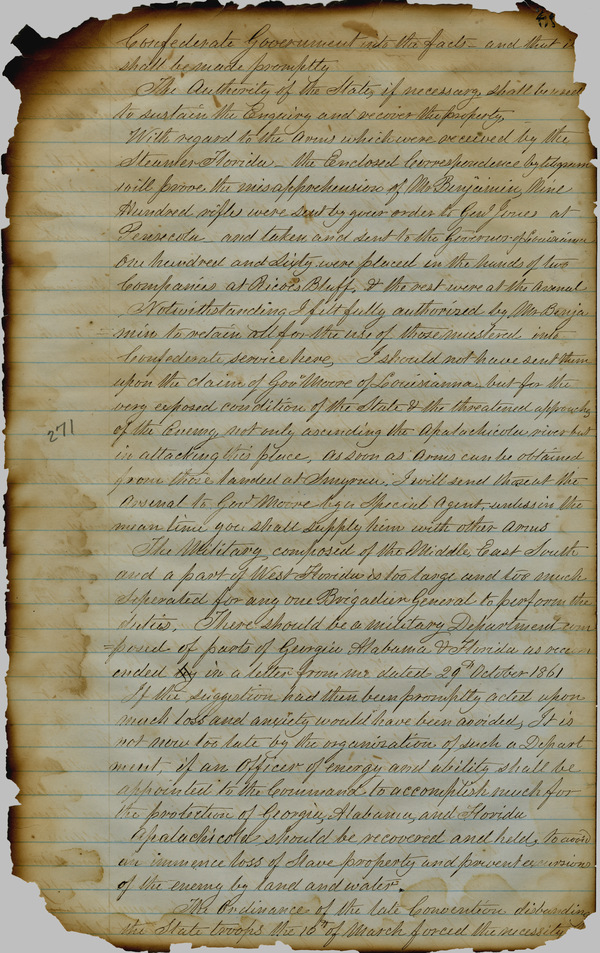 Confederate Government into the facts - and that it
shall be made promptly
The Authority of the State, if necessary shall be used
to sustain the Enquiry and recover the property
With regard to the Arms which were received by the
Steamer Florida the Enclosed Correspondence by telegram
will prove the misapprehension of Mr Benjamin, Nine
Hundred rifles were sent by your order to Genl Jones at
Pensacola and taken and sent to the Governor of Louisianna
One hundred and Sixty were placed in the hands of two
Companies at Rico's Bluff, & the rest were at the Arsenal
Notwithstanding I felt fully authorized by Mr Benja
min to retain all for the use of those mustered into
Confederate service here, I should not have sent them
upon the claim of Govr Moore of Louisianna but for the
very exposed condition of the State & the threatened approach
of the Enemy not only ascending the Apalachicola river but
in attacking this place, As soon as Arms can be obtained
from those landed at Smyrna, I will send those at the
Arsenal to Govr Moore by a Special Agent, unless in the
mean time you shall supply him with other Arms
The Military, composed of the Middle, East South
and a part of West Florida is too large and too much
Seperated for any one Brigadier General to perform the
duties, There should be a military Department com
=posed of parts of Georgia Alabama & Florida as recom
ended in a letter from me dated 29th October 1861
If the suggestion had then been promptly acted upon
much loss and anxiety would have been avoided, It is
not now too late by the organization of such a Depart
ment, if an Officer of energy and ability shall be
appointed to the Command to accomplish much for
the protection of Georgia, Alabama, and Florida
Apalachicola should be recovered and held, to avoid
an immence loss of Slave property and prevent excursions
of the enemy by land and water.
The Ordinance of the late Convention disbanding
the State troops the 10th of March forced the necessity
271